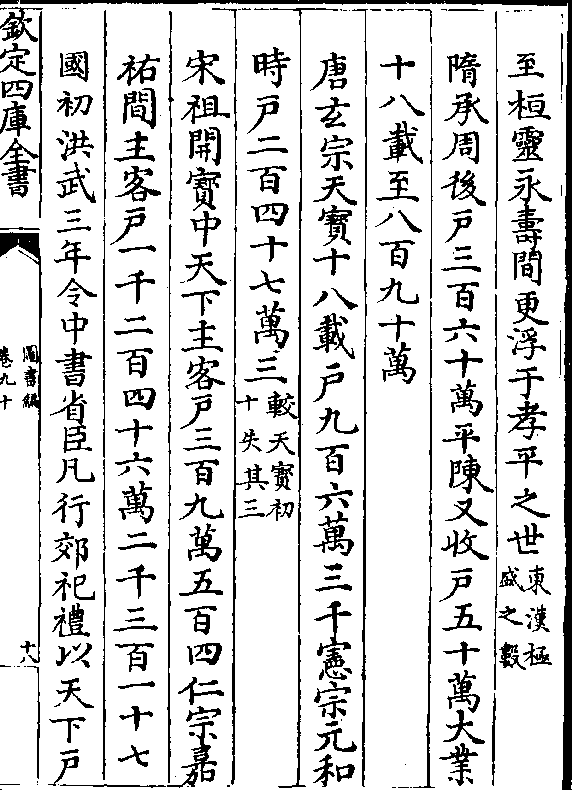 至桓靈永壽間更浮于孝平之世東漢極盛之數
隋承周後戸三百六十萬平陳又收戸五十萬大業
十八載至八百九十萬
唐玄宗天寳十八載戸九百六萬三千憲宗元和
時戸二百四十七萬三較天寳初十失其三
宋祖開寳中天下主客戸三百九萬五百四仁宗嘉
祐間主客戸一千二百四十六萬二千三百一十七
國初洪武三年令中書省臣凡行郊祀禮以天下戸
欽定四庫全書
圖書編
卷九十
十八